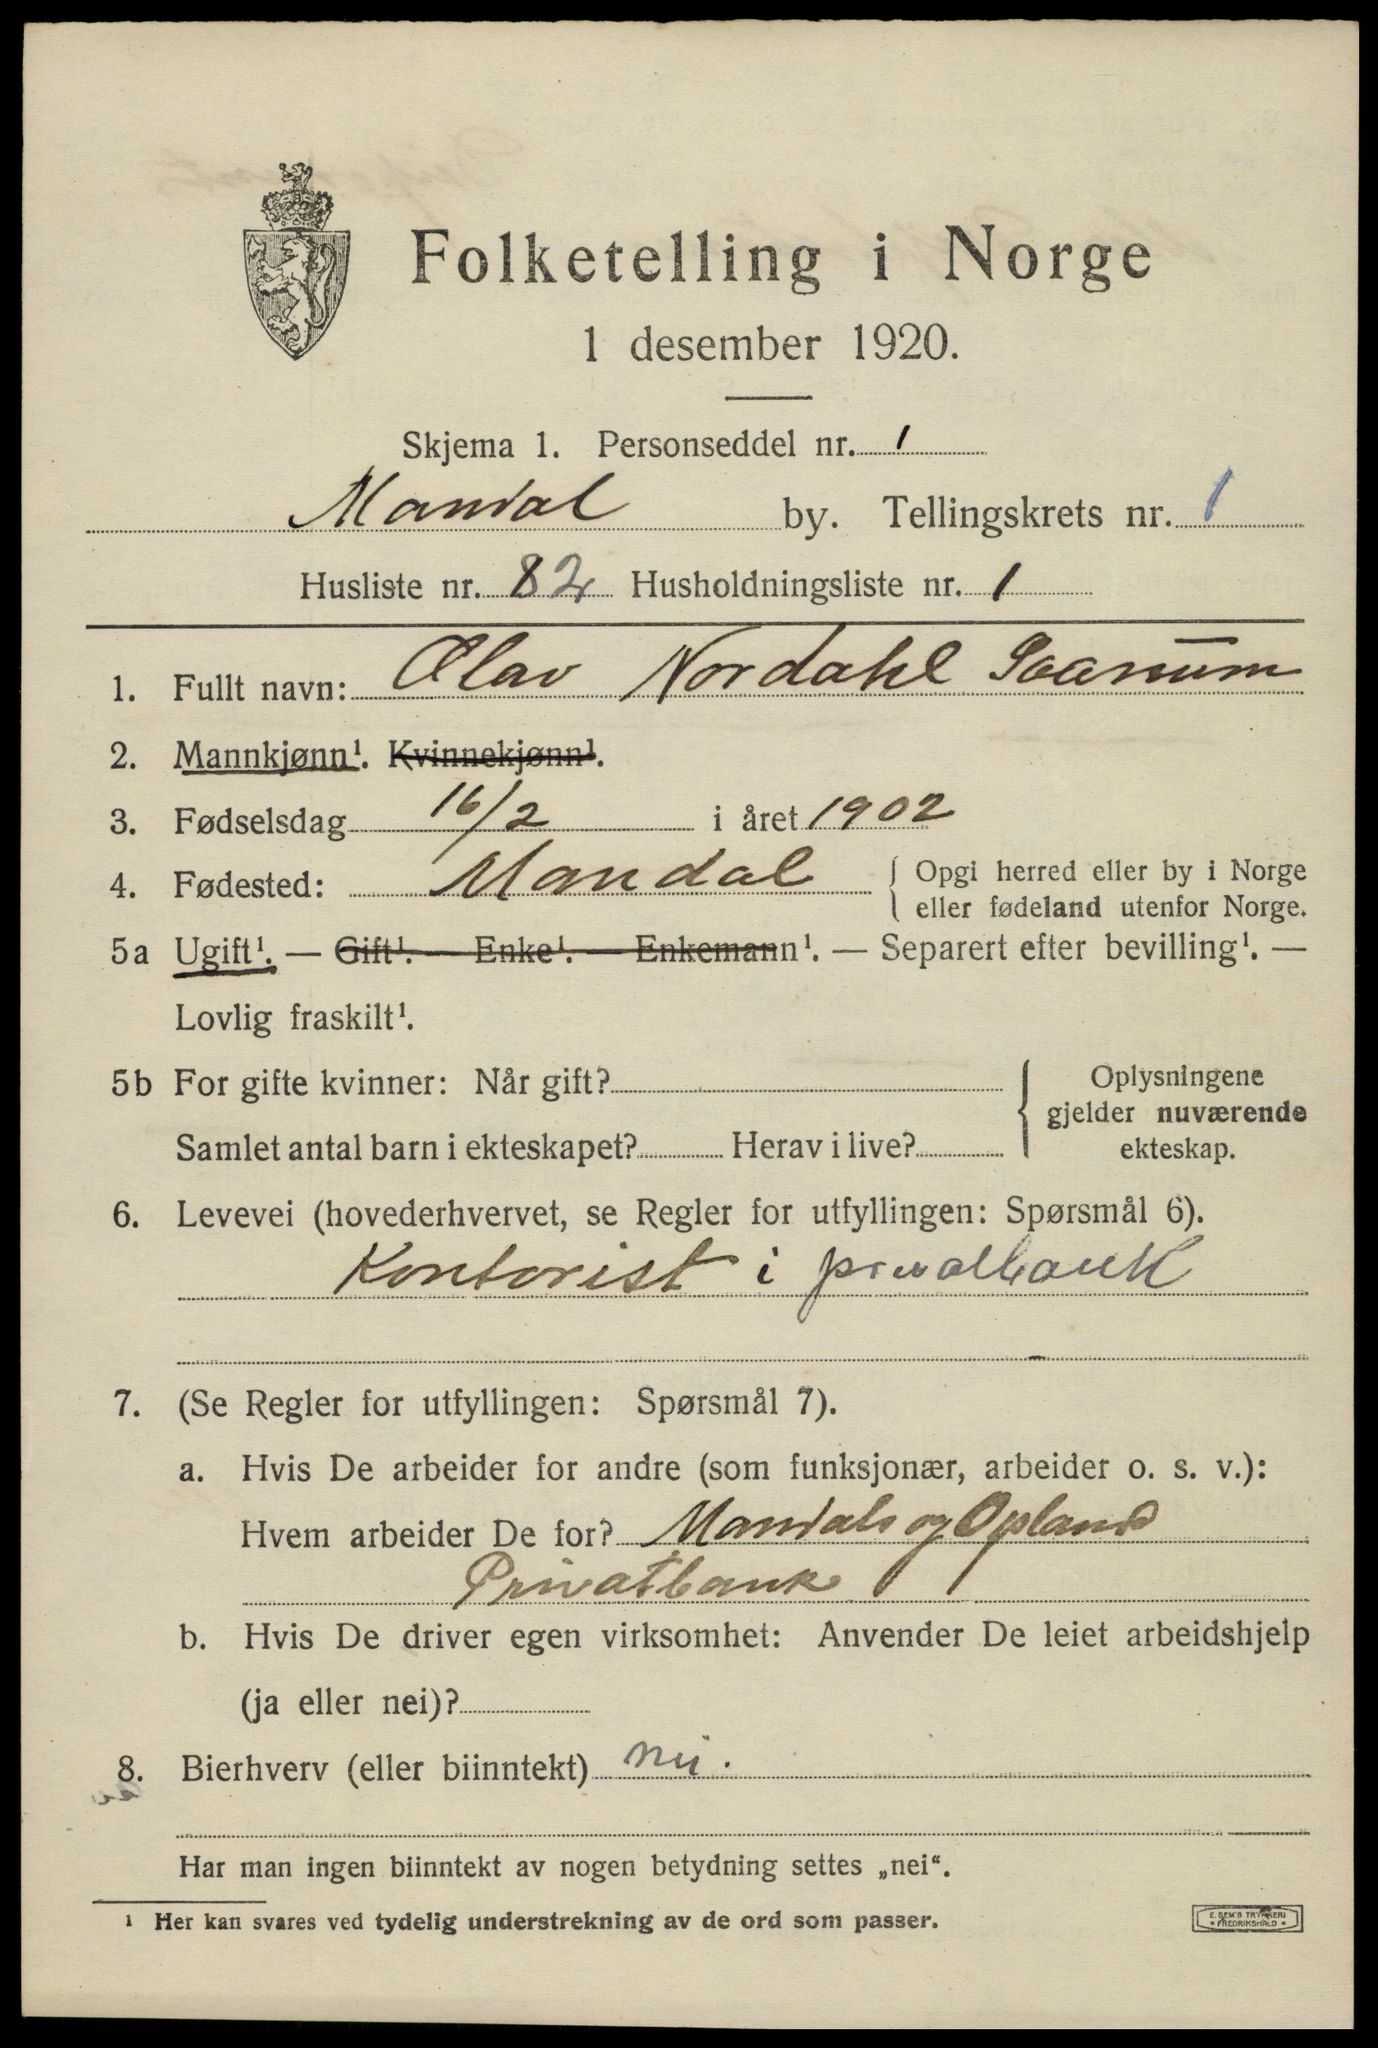 Folketelling i Norge
1 desember 1920.
Skjema 1. Personseddel nr. 1
Mandal by. Tellingskrets nr. 1
Husliste nr. 82 Husholdningsliste nr. 1
1. Fullt navn: Olav Nordahl Saanum
2. Mannkjønn¹. Kvinnekjønn¹.
3. Fødselsdag 16/2 i året 1902
4. Fødested: Mandal { Opgi herred eller by i Norge
eller fødeland utenfor Norge.
5a Ugift¹. — Gift¹. — Enke¹. — Enkemann¹. — Separert efter bevilling¹. —
Lovlig fraskilt¹.
5b For gifte kvinner: Når gift?
Samlet antal barn i ekteskapet? Herav i live?
{ Oplysningene
gjelder nuværende
ekteskap.
6. Levevei (hovederhvervet, se Regler for utfyllingen: Spørsmål 6).
Kontorist i privatbank
7. (Se Regler for utfyllingen: Spørsmål 7).
a. Hvis De arbeider for andre (som funksjonær, arbeider o. s. v.):
Hvem arbeider De for? Mandals og Oplands
Privatbank
b. Hvis De driver egen virksomhet: Anvender De leiet arbeidshjelp
(ja eller nei)?
8. Bierhverv (eller biinntekt) nei.
Har man ingen biinntekt av nogen betydning settes „nei“.
¹ Her kan svares ved tydelig understrekning av de ord som passer.
E. SEM'S TRYKKERI
* FREDRIKSHALD *